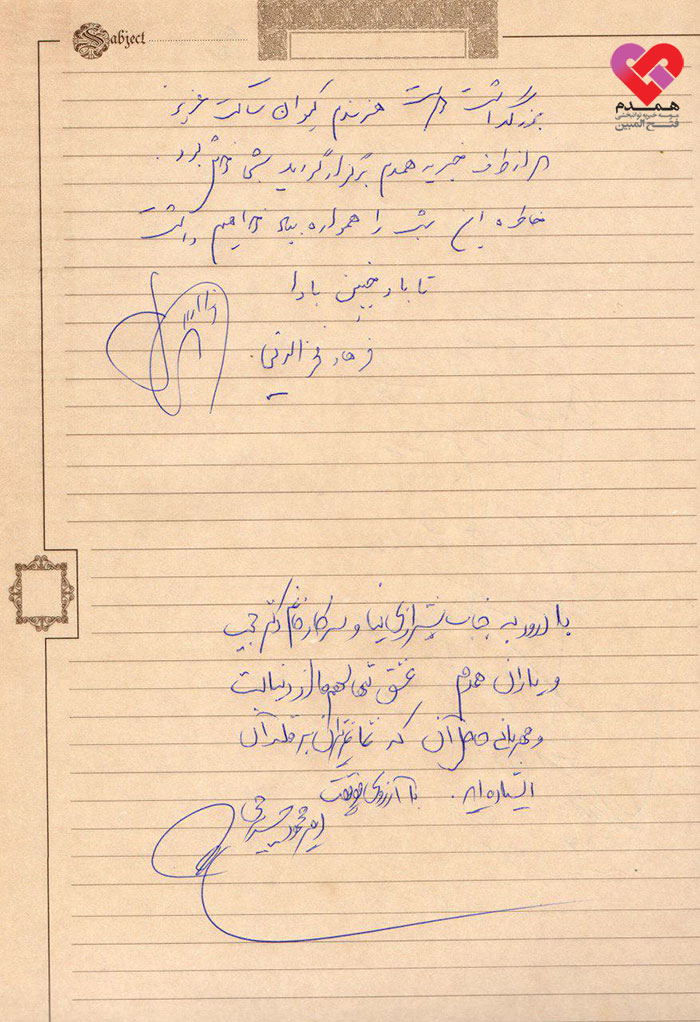 Subject
همدم
موسسه خیریه توانبخشی
فتح المبین
بزرگداشت دوست هنرمندم کیوان ساکت عزیز
از طرف خیریه همدم برگزار گردید شبی خوش بود.
خاطره این شب را همواره بیاد خواهیم داشت
تا باد چنین بادا
فرهاد فخرالدینی
با درود به جناب شیرازی نیا و سرکار خانم دکتر حجت
و یاران همدم عشق تنها
و مهربانی حاصل آن که شما عزیزان بر قله آن
ایستاده اید. با آرزوی موفقیت